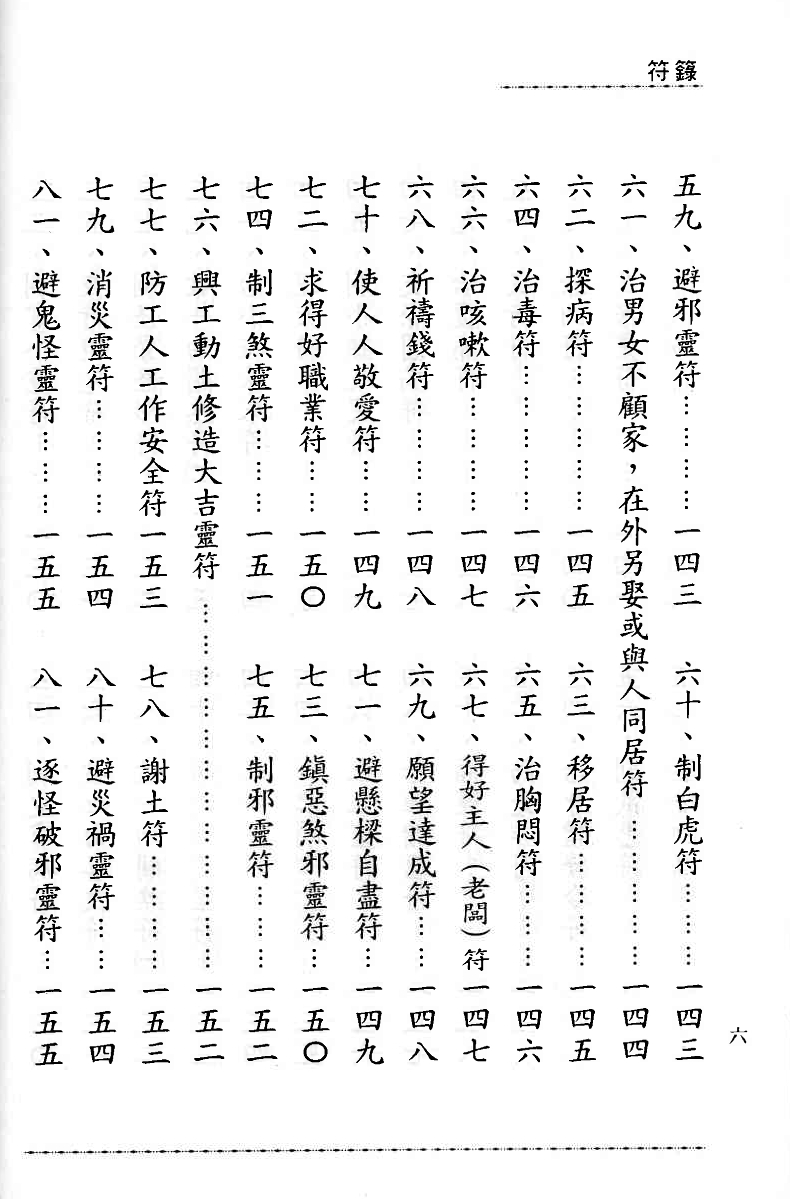 符籙
五九、避邪靈符…………一四三
六十、制白虎符………一四三
六一、治男女不顧家，在外另娶或與人同居符…………一四四
六二、探病符……………一四五
六三、移居符…………一四五
六四、治毒符……………一四六
六五、治胸悶符………一四六
六六、治咳嗽符…………一四七
六七、得好主人(老闆)符一四七
六八、祈禱錢符…………一四八
六九、願望達成符……一四八
七十、使人人敬愛符……一四九
七一、避懸樑自盡符…一四九
七二、求得好職業符……一五〇
七三、鎮惡煞邪靈符…一五〇
七四、制三煞靈符………一五一
七五、制邪靈符………一五二
七六、興工動土修造大吉靈符………………………一五二
七七、防工人工作安全符一五三
七八、謝土符…………一五三
七九、消災靈符…………一五四
八十、避災禍靈符……一五四
八一、避鬼怪靈符………一五五
八一、逐怪破邪靈符…一五五
六